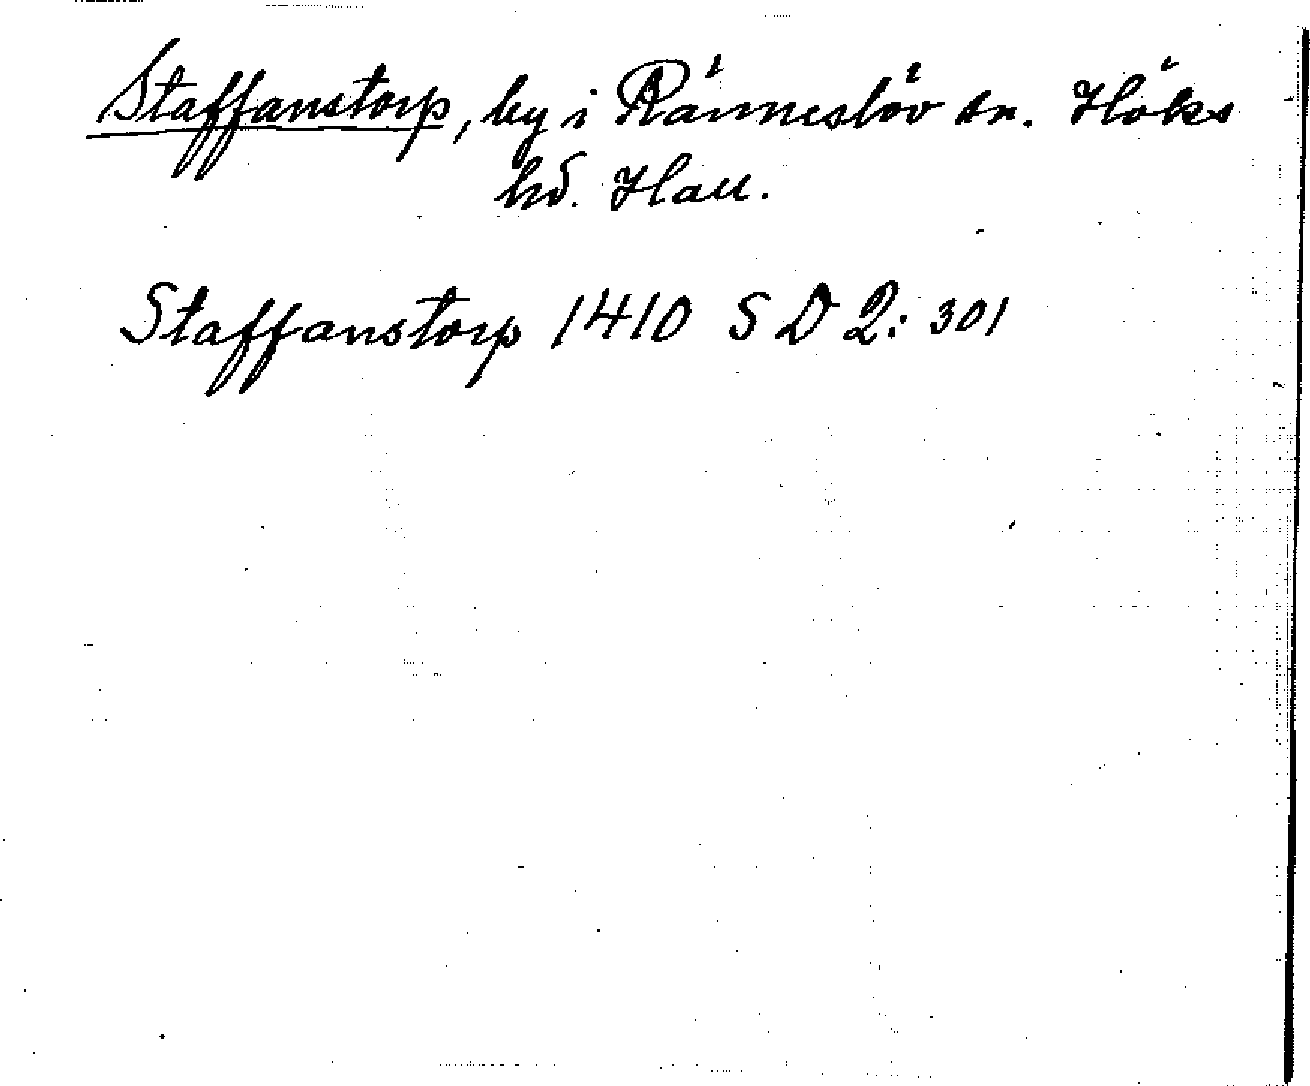 Staffanstorp, by i Ränneslöv sn. Höks
hd. Hall.
Staffanstorp 1410 S D 2: 301